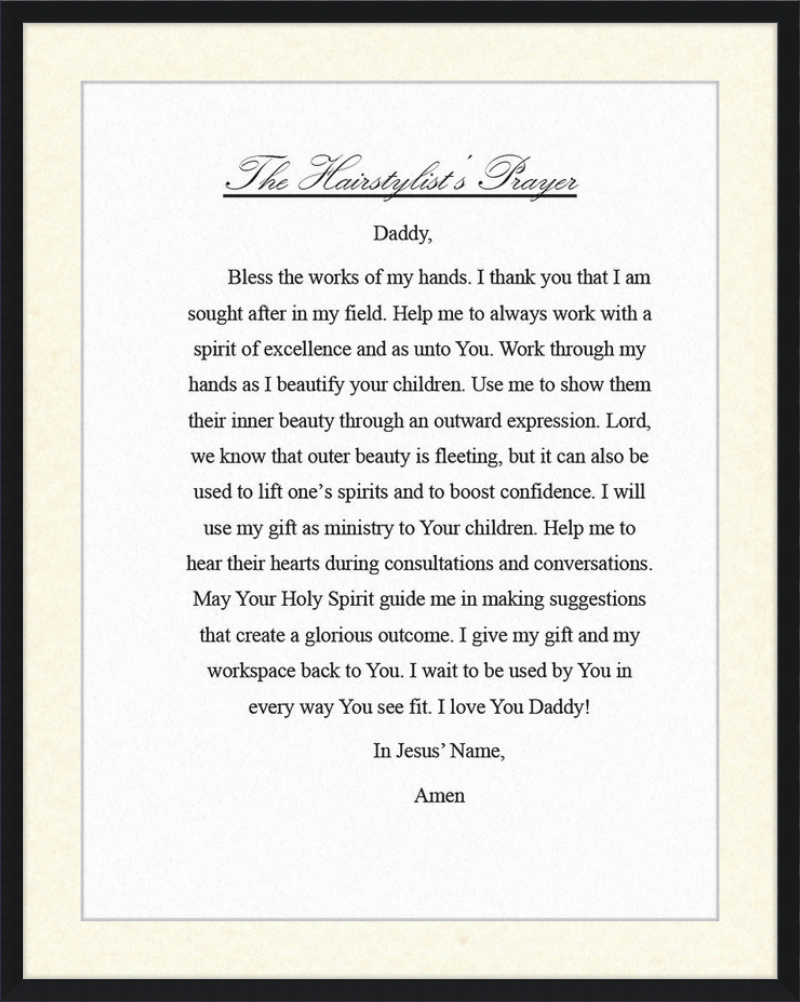 The Hairstylist's Prayer
Daddy,
Bless the works of my hands. I thank you that I am
sought after in my field. Help me to always work with a
spirit of excellence and as unto You. Work through my
hands as I beautify your children. Use me to show them
their inner beauty through an outward expression. Lord,
we know that outer beauty is fleeting, but it can also be
used to lift one’s spirits and to boost confidence. I will
use my gift as ministry to Your children. Help me to
hear their hearts during consultations and conversations.
May Your Holy Spirit guide me in making suggestions
that create a glorious outcome. I give my gift and my
workspace back to You. I wait to be used by You in
every way You see fit. I love You Daddy!
In Jesus’ Name,
Amen